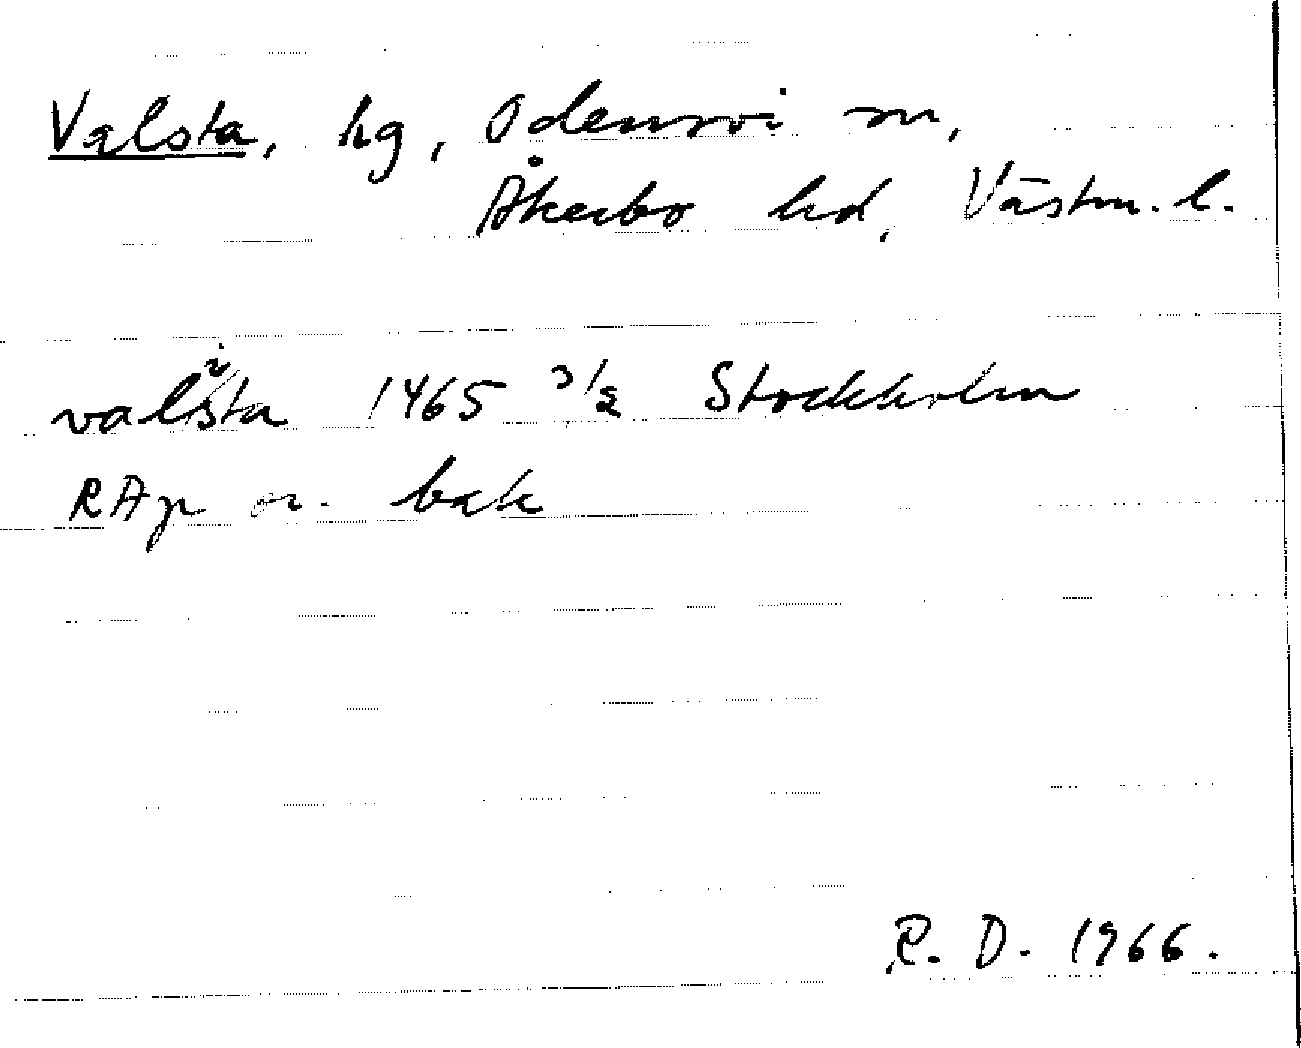 Valsta, hg, Odensvi sn,
Åkerbo hd, Västm. l.
valista 1465 3/2 Stockholm
RAp or. bak
R. D. 1966.